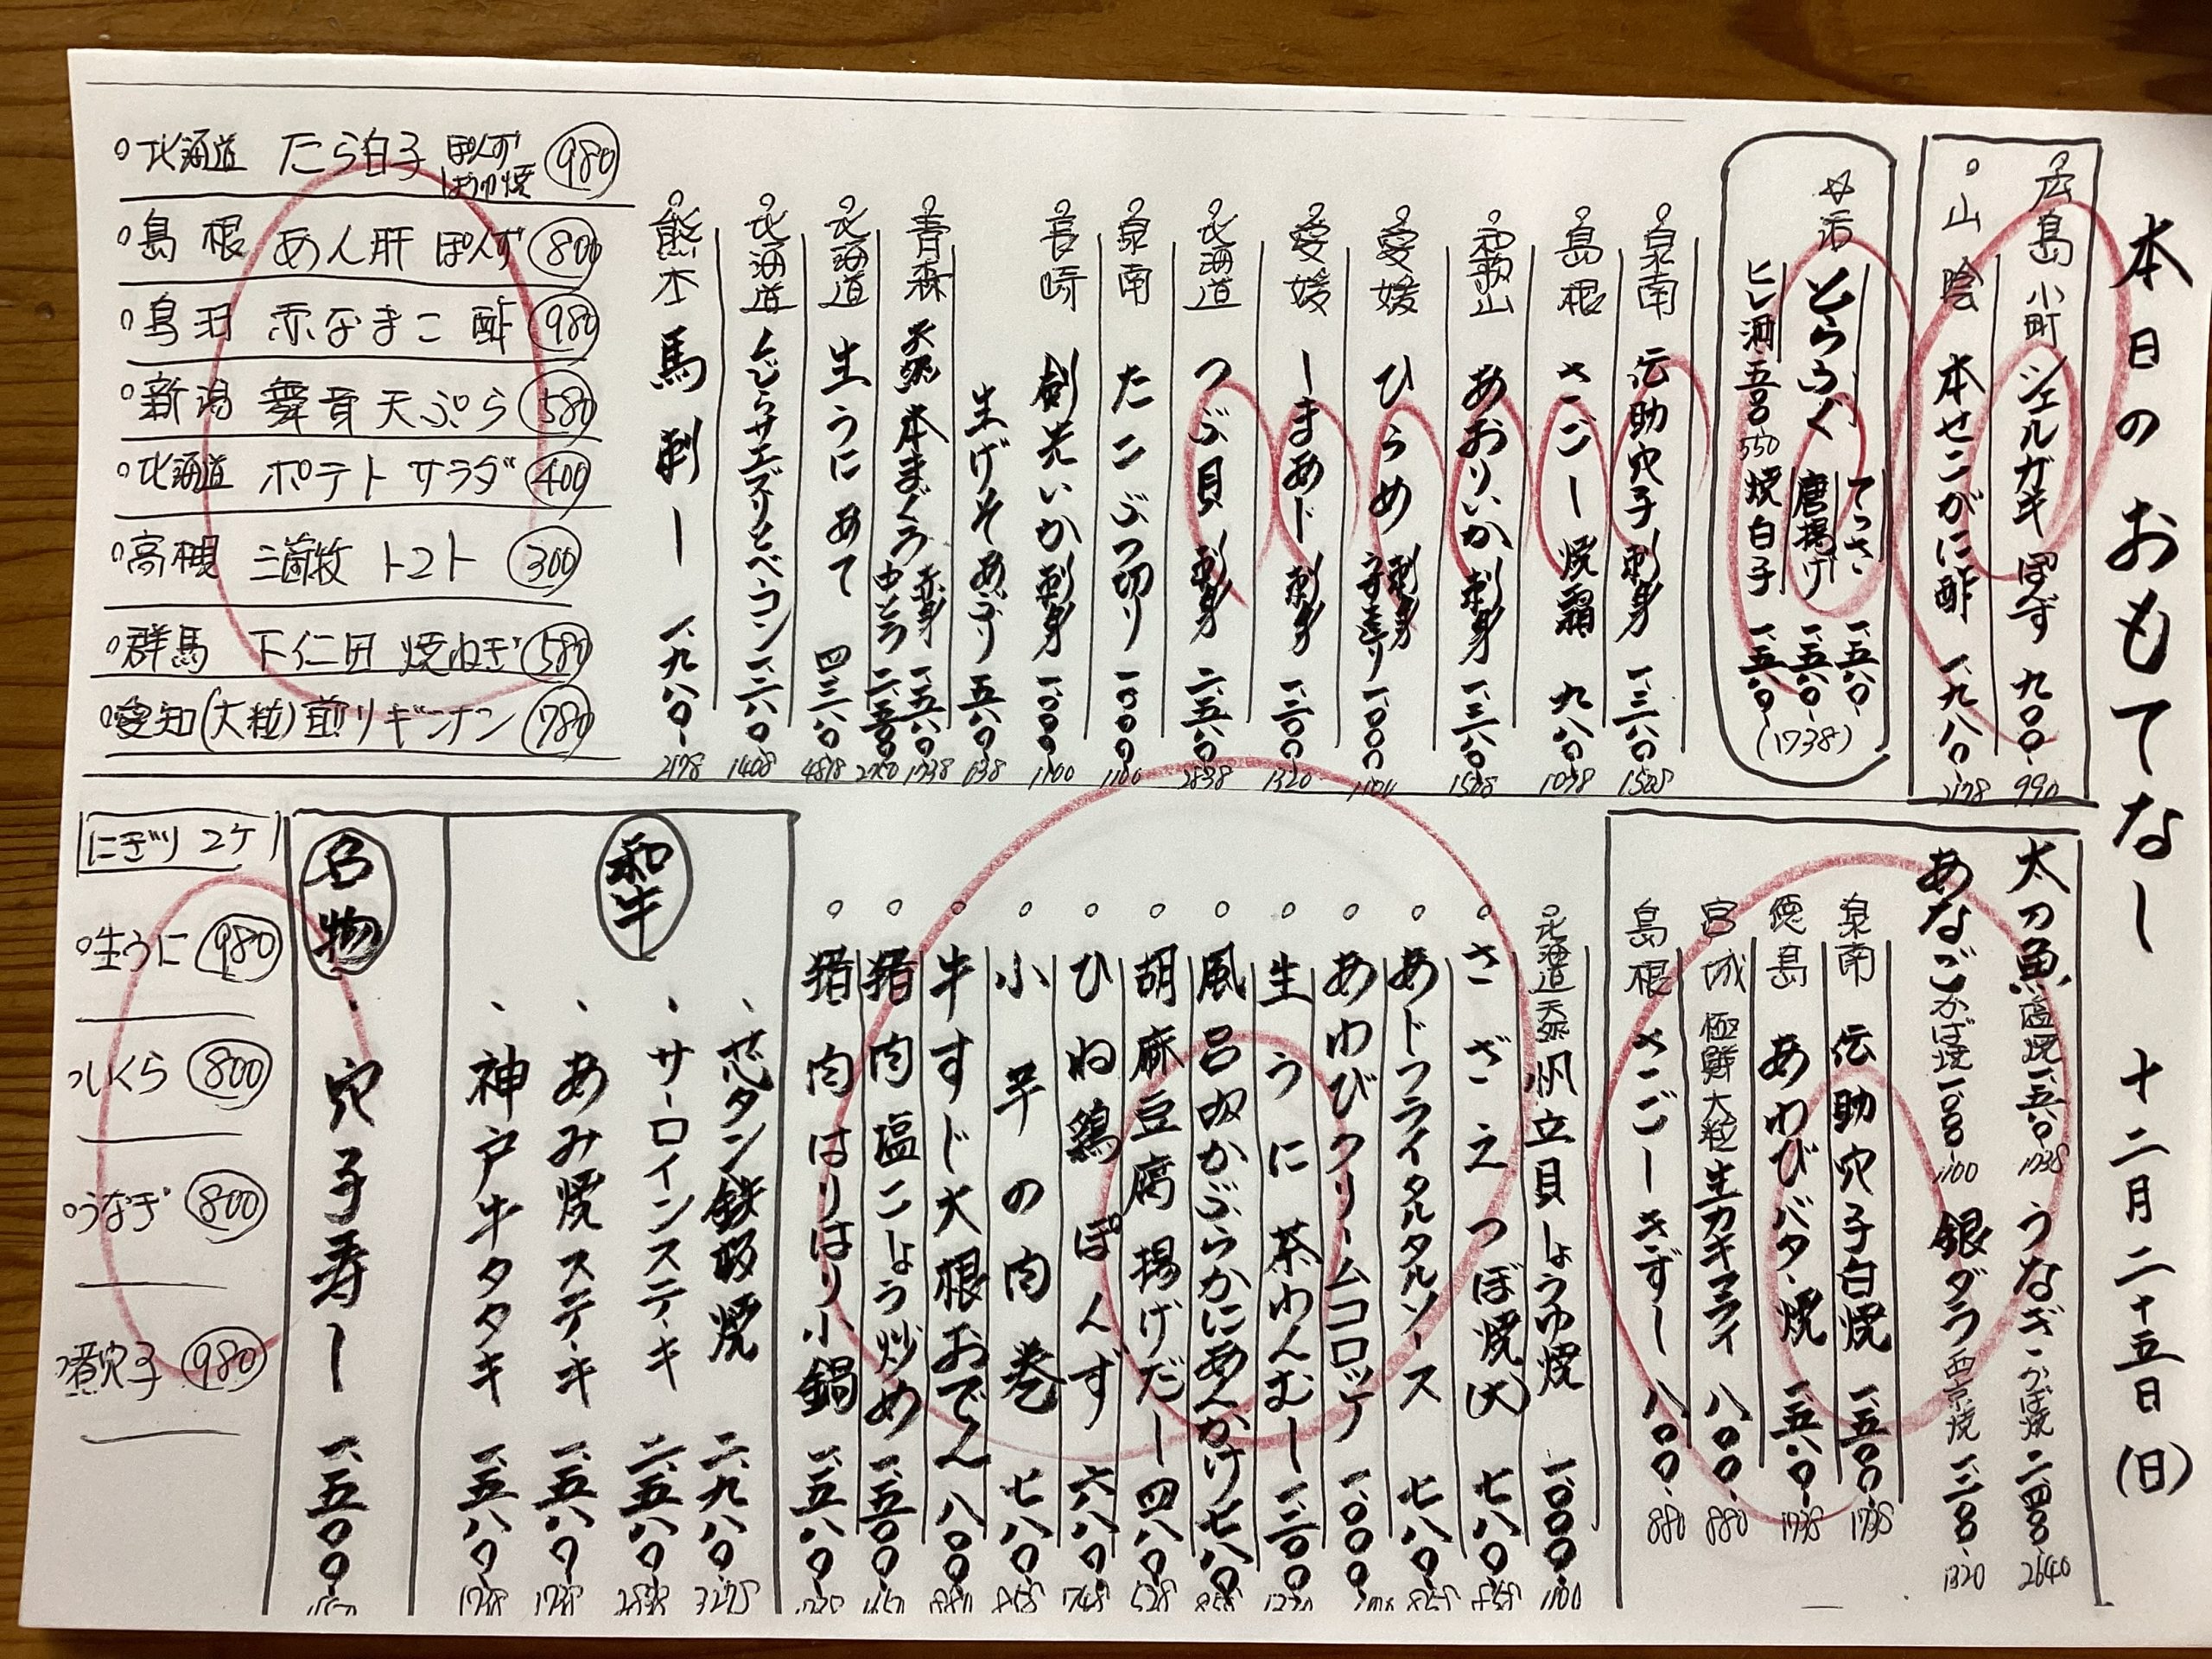 本日のおもてなし 十二月二十五日(日)
広島 小町シェルガキ ぽんず 九〇〇 990
山陰 本せこがに酢 一、九八〇 2178
☆活 とらふぐ てっさ 一、五八〇
唐揚げ 一、五八〇
ヒレ酒 五〇〇 550 焼白子 一、五八〇
(1738)
泉南 伝助穴子 刺身 一、三八〇 1508
島根 さごし 焼霜 九八〇 1078
和歌山 あおりいか 刺身 一、三八〇 1508
愛媛 ひらめ 刺身 うす造り 一、〇〇〇 1100
愛媛 しまあじ 刺身 一、二〇〇 1320
北海道 つぶ貝 刺身 二、五八〇 2838
泉南 たこぶつ切り 一、〇〇〇 1100
長崎 剣先いか 刺身 一、〇〇〇 1100
生げそあぶり 五八〇 638
青森 天然 本まぐろ 赤身 一、五八〇 1738
中とろ 二、五〇〇 2750
北海道 生うに あて 四、三八〇 4818
北海道 くじらサエズリとベーコン 一、二八〇 1408
熊本 馬刺し 一、九八〇 2178
北海道 たら白子 ぽんず しょうゆ焼 980
島根 あん肝 ぽんず 800
鳥羽 赤なまこ 酢 980
新潟 舞茸天ぷら 580
北海道 ポテトサラダ 400
高槻 三箇牧 トマト 300
群馬 下仁田 焼ねぎ 580
愛知(大粒)煎りギンナン 780
太刀魚 塩焼 一、五八〇 1738 うなぎ かば焼 二、四〇〇 2640
あなご かば焼 一、〇〇〇 1100 銀ダラ 西京焼 一、二〇〇 1320
泉南 伝助穴子白焼 一、五八〇 1738
徳島 あわびバター焼 一、五八〇 1738
宮城 極鮮大粒 生カキフライ 八〇〇 880
島根 さごしきずし 八〇〇 880
北海道 天然 帆立貝しょうゆ焼 一、〇〇〇 1100
さざえ つぼ焼(大) 七八〇 858
あじフライタルタルソース 七八〇 858
あわびクリームコロッケ 一、〇〇〇
生うに茶わんむし 一、二〇〇
風呂吹かぶらかにあんかけ 七八〇 858
胡麻豆腐揚げだし 四八〇 528
ひね鶏ぽんず 六八〇 748
小芋の肉巻 七八〇 858
牛すじ大根おでん 八〇〇 880
猪肉塩こしょう炒め 一、五〇〇 1650
猪肉はりはり小鍋 一、五八〇
和牛
芯タン鉄板焼 二、九八〇 3278
サーロインステーキ 二、五八〇 2838
あみ焼ステーキ 一、五八〇 1738
神戸牛タタキ 一、五八〇 1738
名物
穴子寿し 一、五〇〇
にぎり 2ケ
生うに 980
いくら 800
うなぎ 800
煮穴子 980